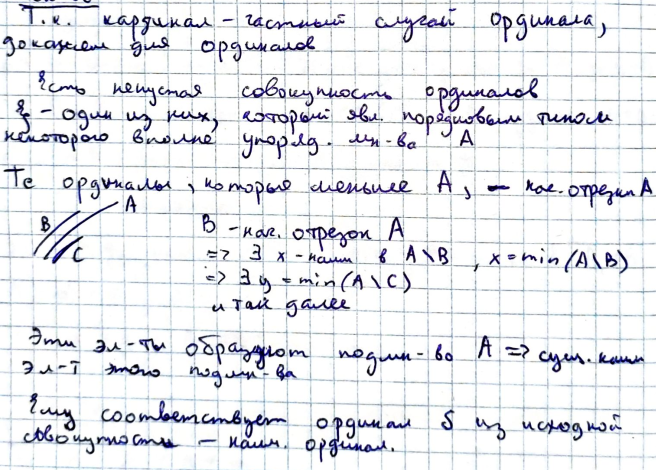 Т.к. кардинал - частный случай ординала,
докажем для ординалов
Есть непустая совокупность ординалов
ξ - один из них, который явл. порядковым типом
некоторого вполне упоряд. мн-ва A
Те ординалы, которые меньше A, - нач. отрезки A
A
B
C
B - нач. отрезок A
=> ∃ x - наим в A\B, x = min(A\B)
=> ∃ y = min(A\C)
и так далее
Эти эл-ты образуют подмн-во A => сущ. наим
эл-т этого подмн-ва
Ему соответствует ординал δ из исходной
совокупности - наим. ординал.